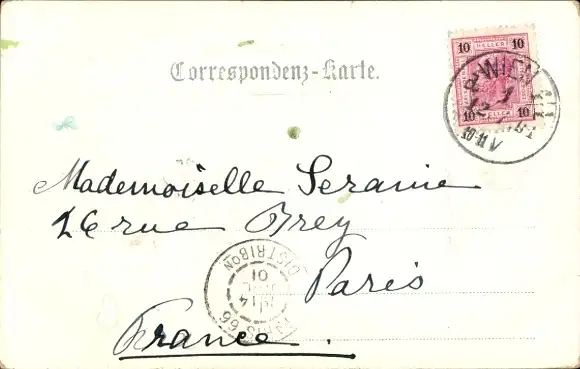 Correspondenz-Karte.
10 HELLER 10
10 HELLER 10
WIEN
Mademoiselle Seranie
26 rue Brey
Paris
France
PARIS 66
DISTRIBON
14
01